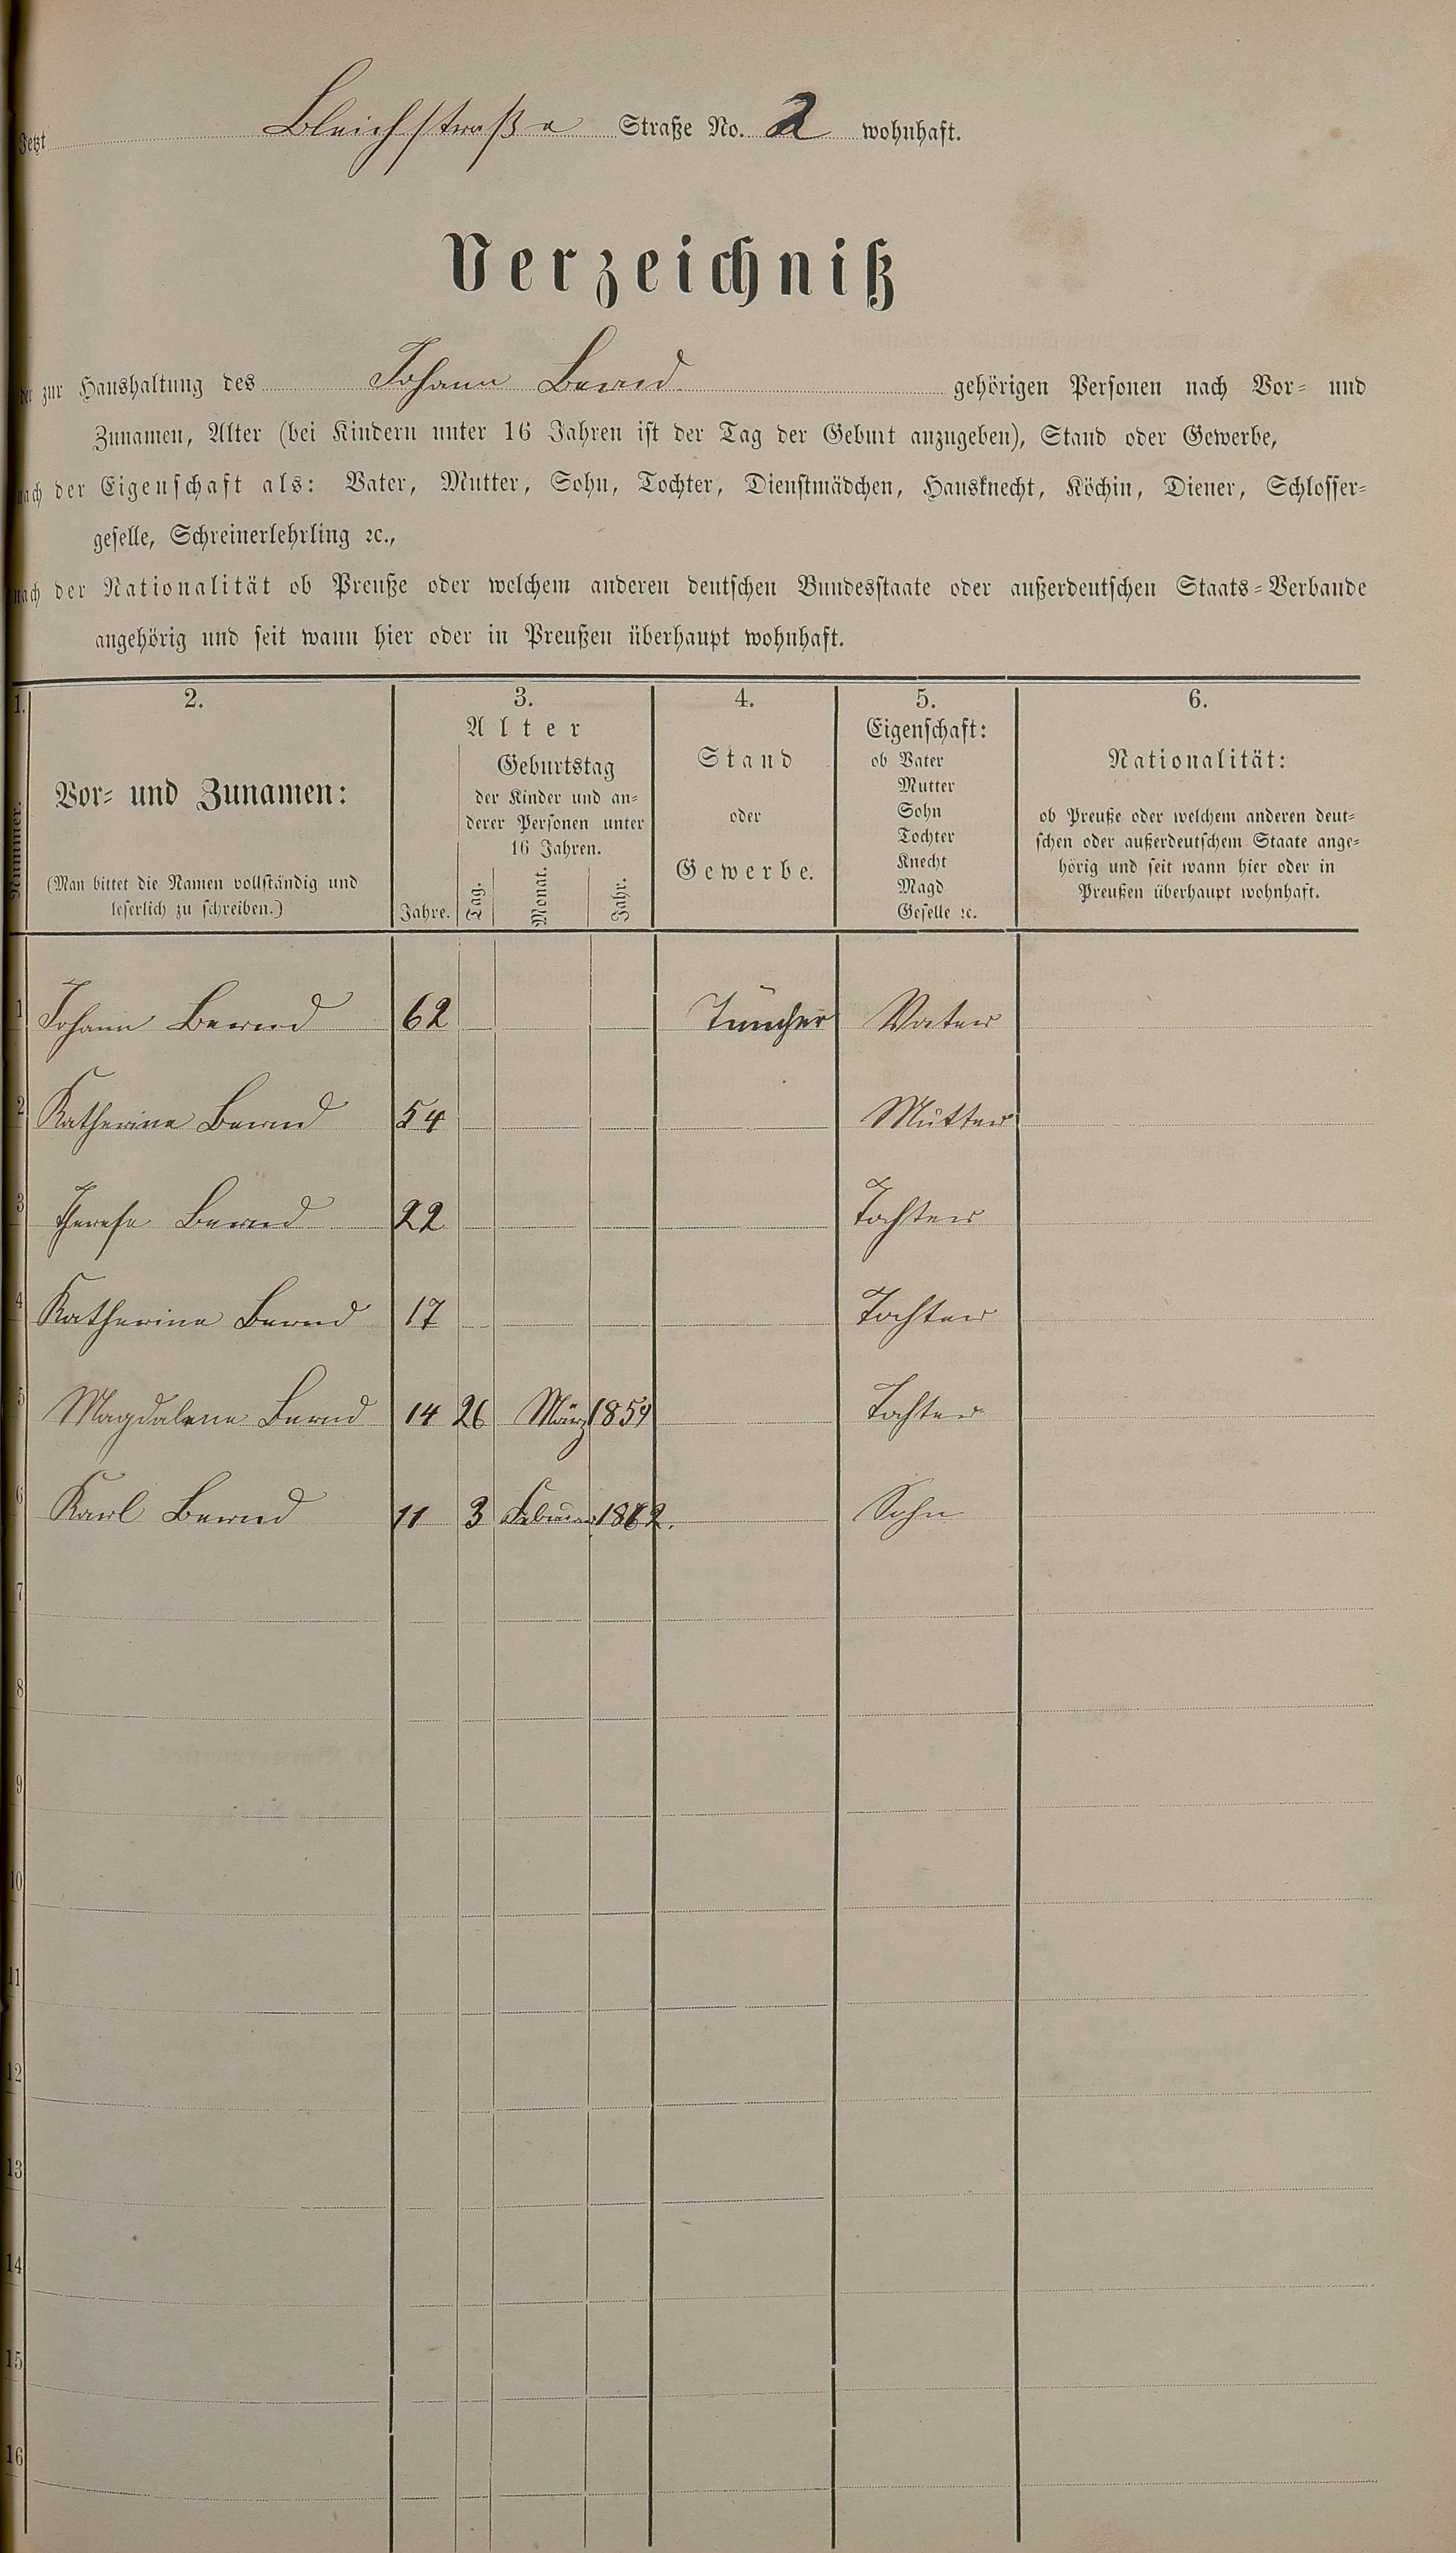 Jetzt Bleichstraße Straße No. 2 wohnhaft.
Verzeichniß
der zur Haushaltung des Johann Bernd gehörigen Personen nach Vor- und
Zunamen, Alter (bei Kindern unter 16 Jahren ist der Tag der Geburt anzugeben), Stand oder Gewerbe,
nach der Eigenschaft als: Vater, Mutter, Sohn, Tochter, Dienstmädchen, Hausknecht, Köchin, Diener, Schlosser-
geselle, Schreinerlehrling ꝛc.,
nach der Nationalität ob Preuße oder welchem anderen deutschen Bundesstaate oder außerdeutschen Staats-Verbande
angehörig und seit wann hier oder in Preußen überhaupt wohnhaft.
1.
Nummer.
2.
Vor- und Zunamen:
(Man bittet die Namen vollständig und
leserlich zu schreiben.)
3.
Alter
Jahre.
Geburtstag
der Kinder und an-
derer Personen unter
16 Jahren.
Tag.
Monat.
Jahr.
4.
Stand
oder
Gewerbe.
5.
Eigenschaft:
ob Vater
Mutter
Sohn
Tochter
Knecht
Magd
Geselle ꝛc.
6.
Nationalität:
ob Preuße oder welchem anderen deut-
schen oder außerdeutschem Staate ange-
hörig und seit wann hier oder in
Preußen überhaupt wohnhaft.
1 Johann Bernd 62 Tüncher Vater
2 Katherine Bernd 54 Mutter
3 Therese Bernd 22 Tochter
4 Katherine Bernd 17 Tochter
5 Magdalene Bernd 14 26 März 1859 Tochter
6 Karl Bernd 11 3 Februar 1862. Sohn
7
8
9
10
11
12
13
14
15
16